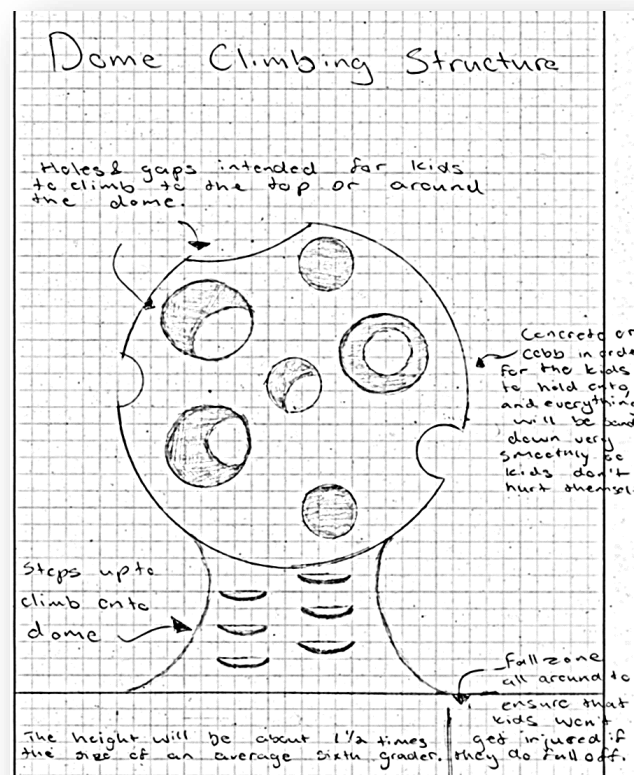 Dome Climbing Structure
Holes & gaps intended for kids
to climb to the top or around
the dome.
Concrete or
cobb in orde
for the kids
to hold onto
and everything
will be sand
down very
smoothly so
kids don't
hurt themsel
Steps up to
climb onto
dome
fall zone
all around to
ensure that
kids won't
get injured if
they do fall off.
The height will be about 1 1/2 times
the size of an average sixth grader.